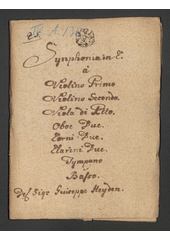 Symphonia ex E.
à
Violino Primo
Violino Secondo.
Viola di Alto.
Oboe Due.
Corni Due.
Clarini Due.
Tympano
Basso.
Del Sigr Guiseppe Heyden.